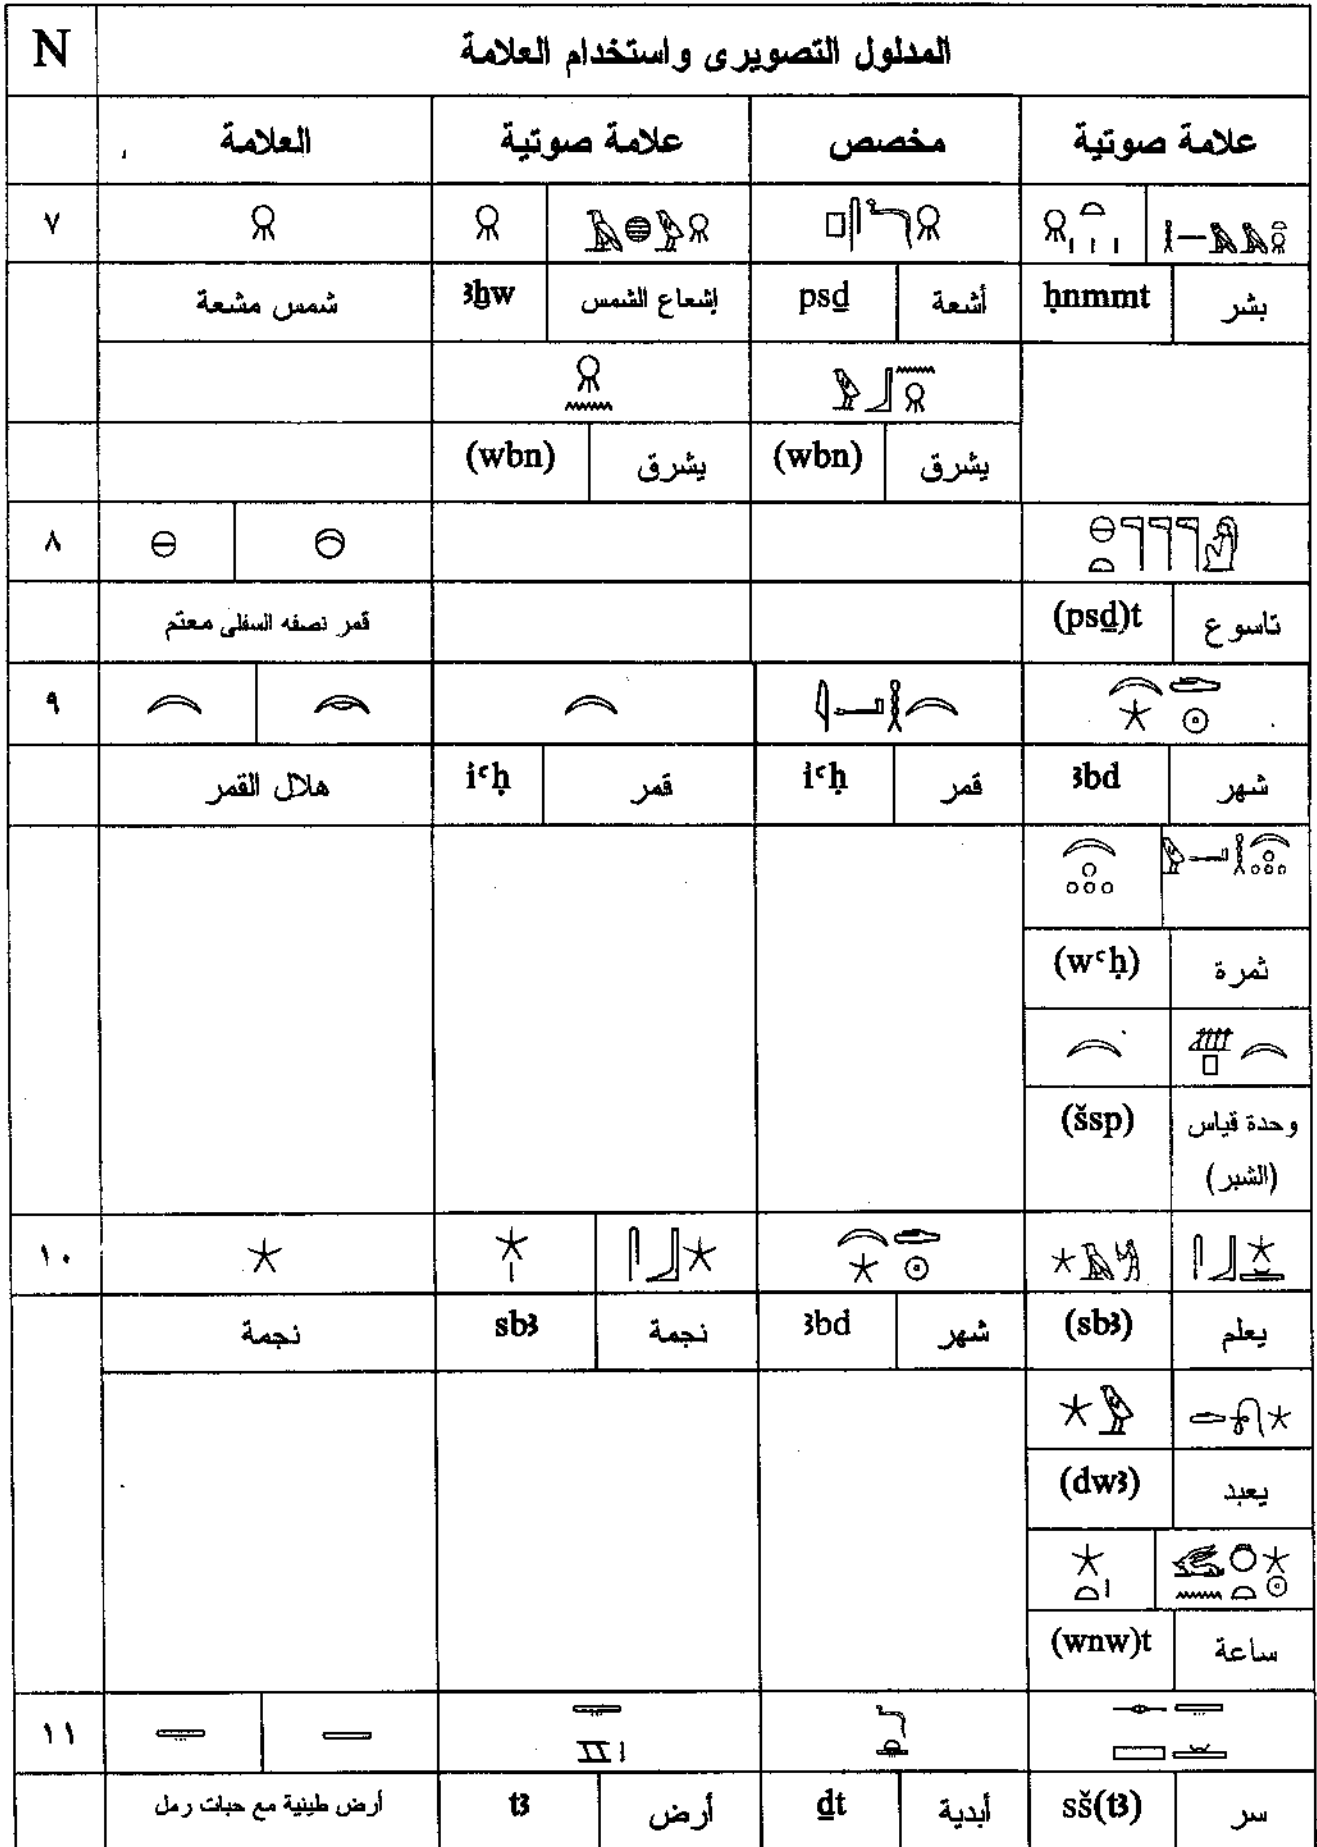 N المدلول التصويرى واستخدام العلامة
العلامة علامة صوتية مخصص علامة صوتية
٧
شمس مشعة ȝẖw إشعاع الشمس psḏ أشعة ḥnmmt بشر
(wbn) يشرق (wbn) يشرق
٨
قمر نصفه السفلى معتم (psḏ)t تاسوع
٩
هلال القمر iꜥḥ قمر iꜥḥ قمر ȝbd شهر
(wꜥḥ) ثمرة
(šsp) وحدة قياس
(الشبر)
١٠
نجمة sbȝ نجمة ȝbd شهر (sbȝ) يعلم
(dwȝ) يعبد
(wnw)t ساعة
١١
أرض طينية مع حبات رمل tȝ أرض ḏt أبدية sš(tȝ) سر